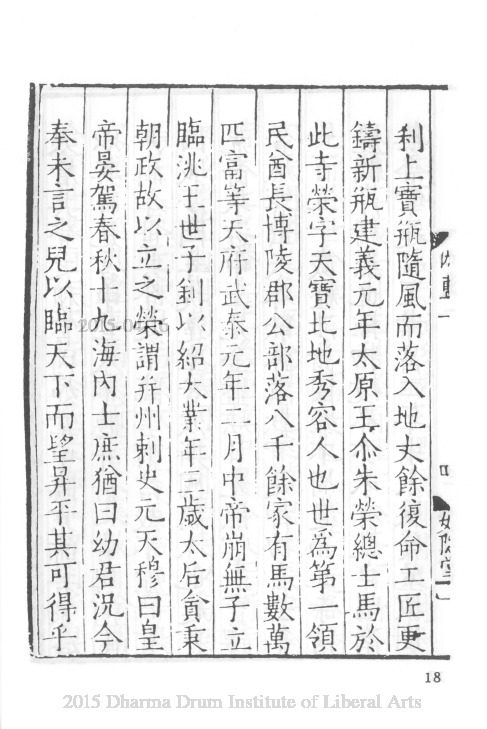 利上寶瓶隨風而落入地丈餘復命工匠更
鑄新瓶建義元年太原王尒朱榮總士馬於
此寺榮字天寶北地秀容人也世爲第一領
民酋長博陵郡公部落八千餘家有馬數萬
匹富等天府武泰元年二月中帝崩無子立
臨洮王世子釗以紹大業年三歲太后貪秉
朝政故以立之榮謂幷州刺史元天穆曰皇
帝晏駕春秋十九海內士庶猶曰幼君況今
奉未言之兒以臨天下而望昇平其可得乎
18
2015 Dharma Drum Institute of Liberal Arts